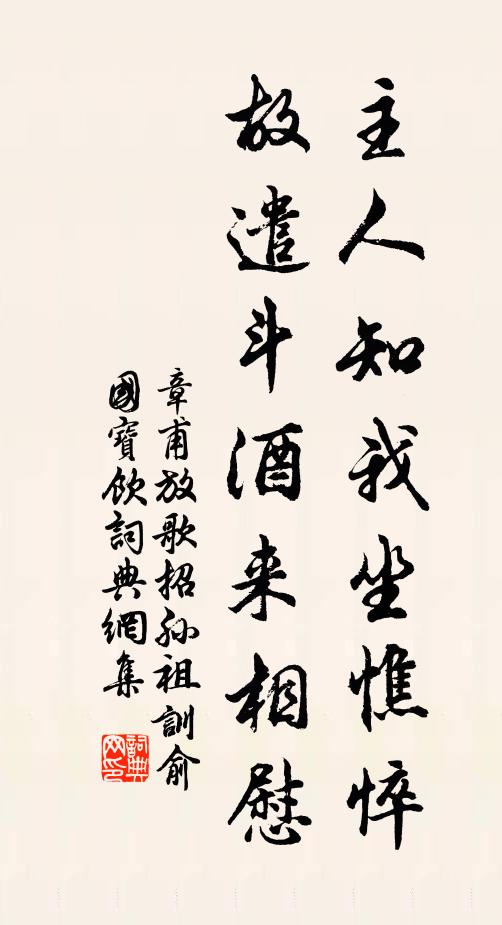 主人知我坐憔悴
故遣斗酒来相慰
章甫放歌招孙祖訓俞
國寶飲詞典網集
詞典
网印